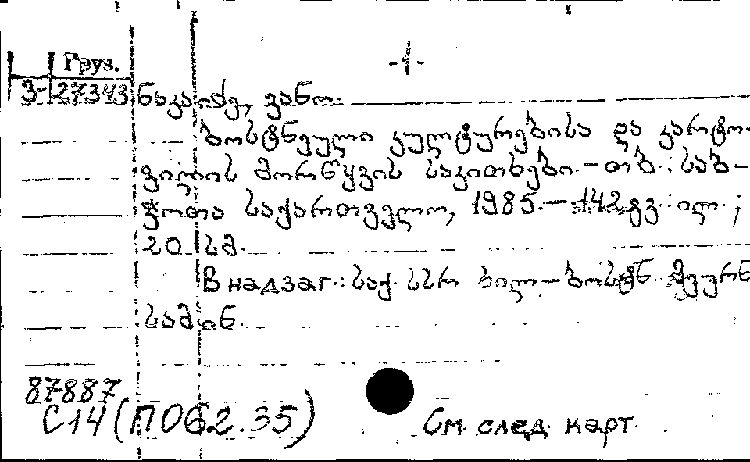 Груз. -1-
3-27343 ნაკაიძე, ვანო.
ბოსტნეული კულტურებისა და კარტო-
ფილის მორწყვის საკითხები. - თბ. : საბ-
ჭოთა საქართველო, 1985. - 142 გვ. : ილ. ;
20 სმ.
В надзаг.: საქ. სსრ ხილ-ბოსტნ. მეურნ.
სამ-ინ.
87887
С14(ПО62.35) См. след. карт.